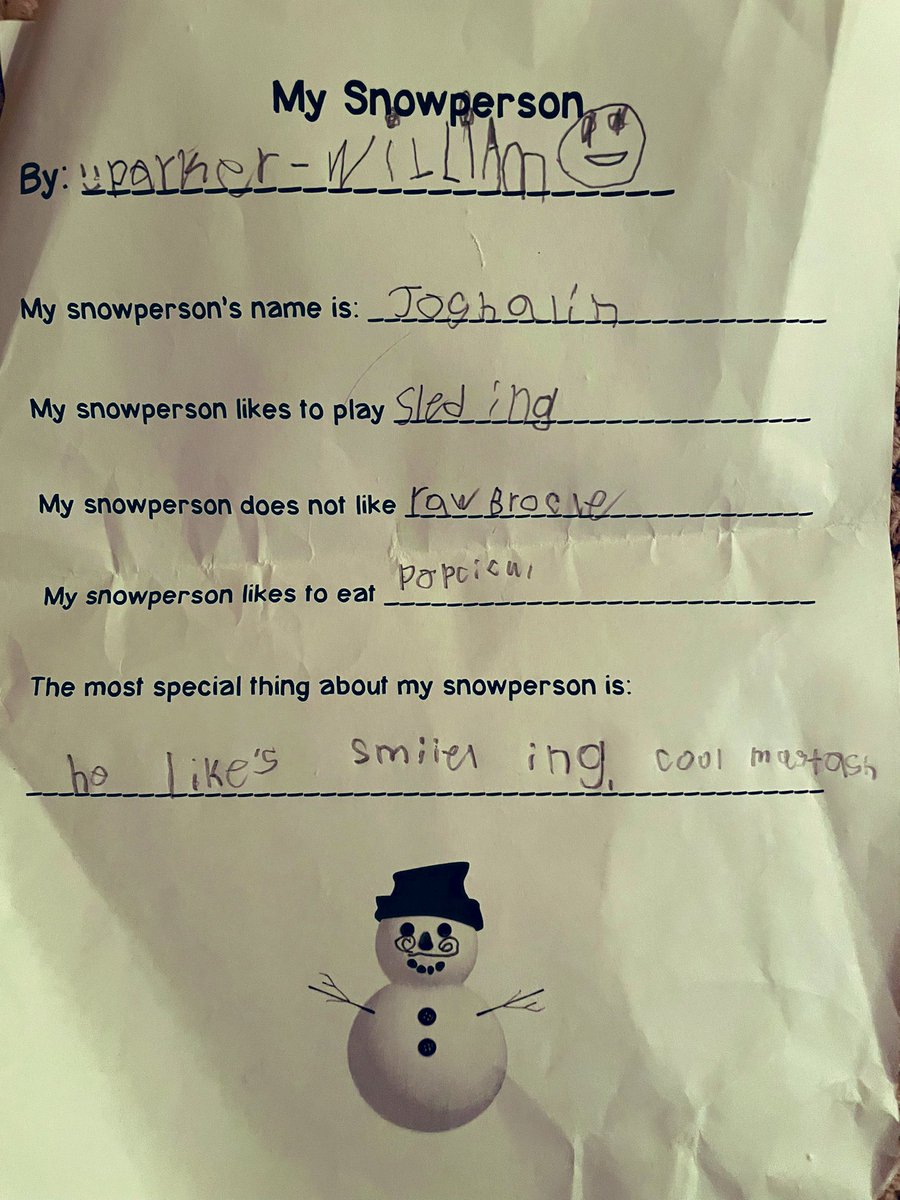 My Snowperson
By: parker-WiLLiAm
My snowperson's name is: Joghalin
My snowperson likes to play Sled ing
My snowperson does not like raw Brocle
My snowperson likes to eat popcicul
The most special thing about my snowperson is:
he like's smiler ing, cool mastash